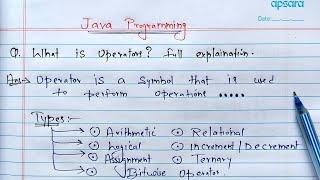 apsara
Date:
Java Programming
Q. What is Operators? full explaination.
Ans→ Operator is a symbol that is used
to perform operations .....
Types:-
Arithmetic Relational
Logical Increment/Decrement
Assignment Ternary
Bitwise Operator.